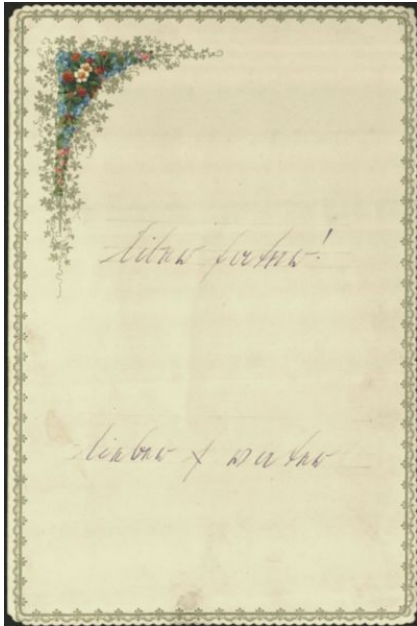 Lieber Vater!
lieber vater